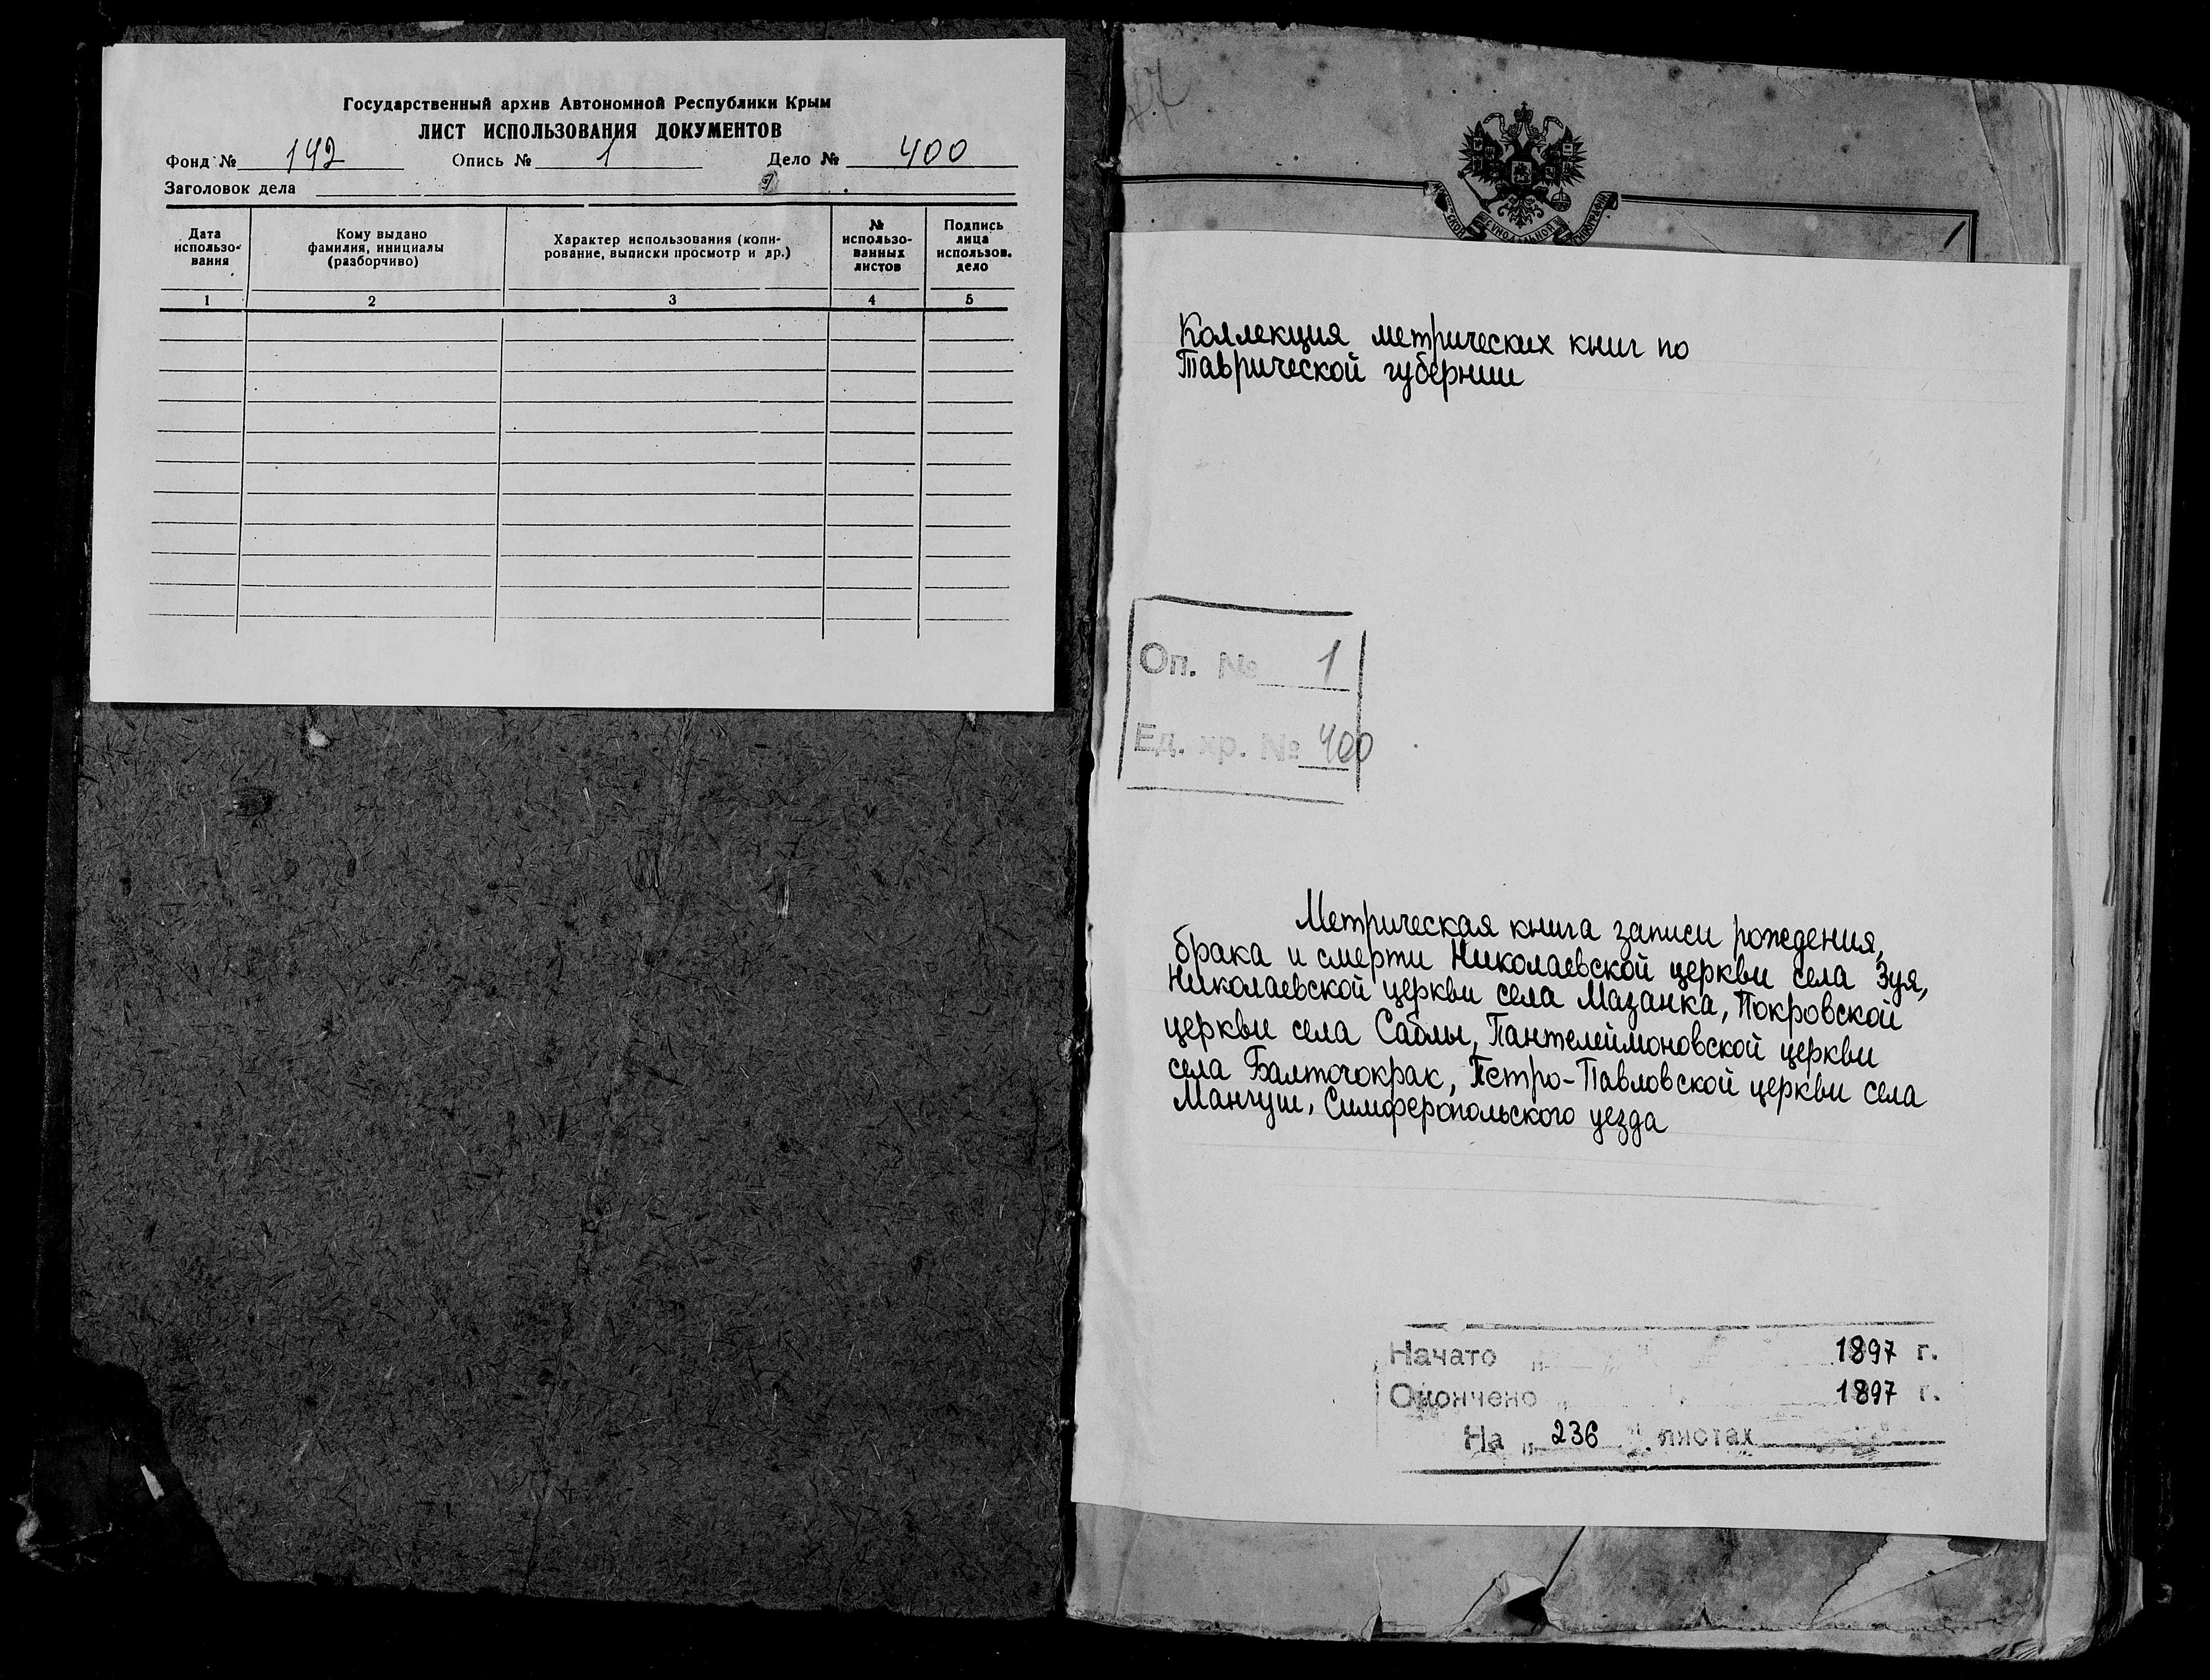 Государственный архив Автономной Республики Крым
ЛИСТ ИСПОЛЬЗОВАНИЯ ДОКУМЕНТОВ
Фонд № 142 Опись № 1 Дело № 400
Заголовок дела
Дата использо-вания
Кому выдано фамилия, инициалы (разборчиво)
Характер использования (копи-рование, выписки просмотр и др.)
№ использо-ванных листов
Подпись лица использов. дело
1 2 3 4 5
1
СИНОДАЛЬНОЙ ТИПОГРАФИИ
Коллекция метрических книг по
Таврической губернии
Оп. № 1
Ед. хр. № 400
Метрическая книга записи рождения,
брака и смерти Николаевской церкви села Зуя,
Николаевской церкви села Мазанка, Покровской
церкви села Саблы, Пантелеймоновской церкви
села Балточокрак, Петро-Павловской церкви села
Мангуш, Симферопольского уезда
Начато " " 1897 г.
Окончено 1897 г.
На " 236 " листах